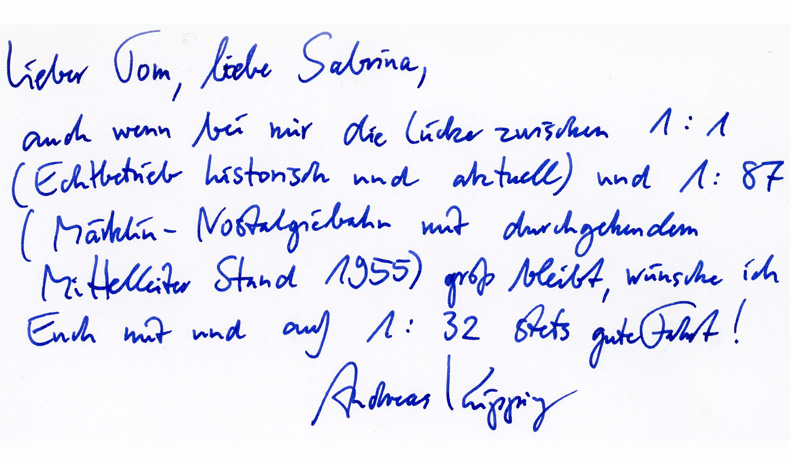 Lieber Tom, liebe Sabrina,
auch wenn bei mir die Lücke zwischen 1:1
(Echtbetrieb historisch und aktuell) und 1:87
(Märklin-Nostalgiebahn mit durchgehendem
Mittelleiter Stand 1955) groß bleibt, wünsche ich
Euch mit und auf 1:32 stets gute Fahrt!
Andreas Knipping